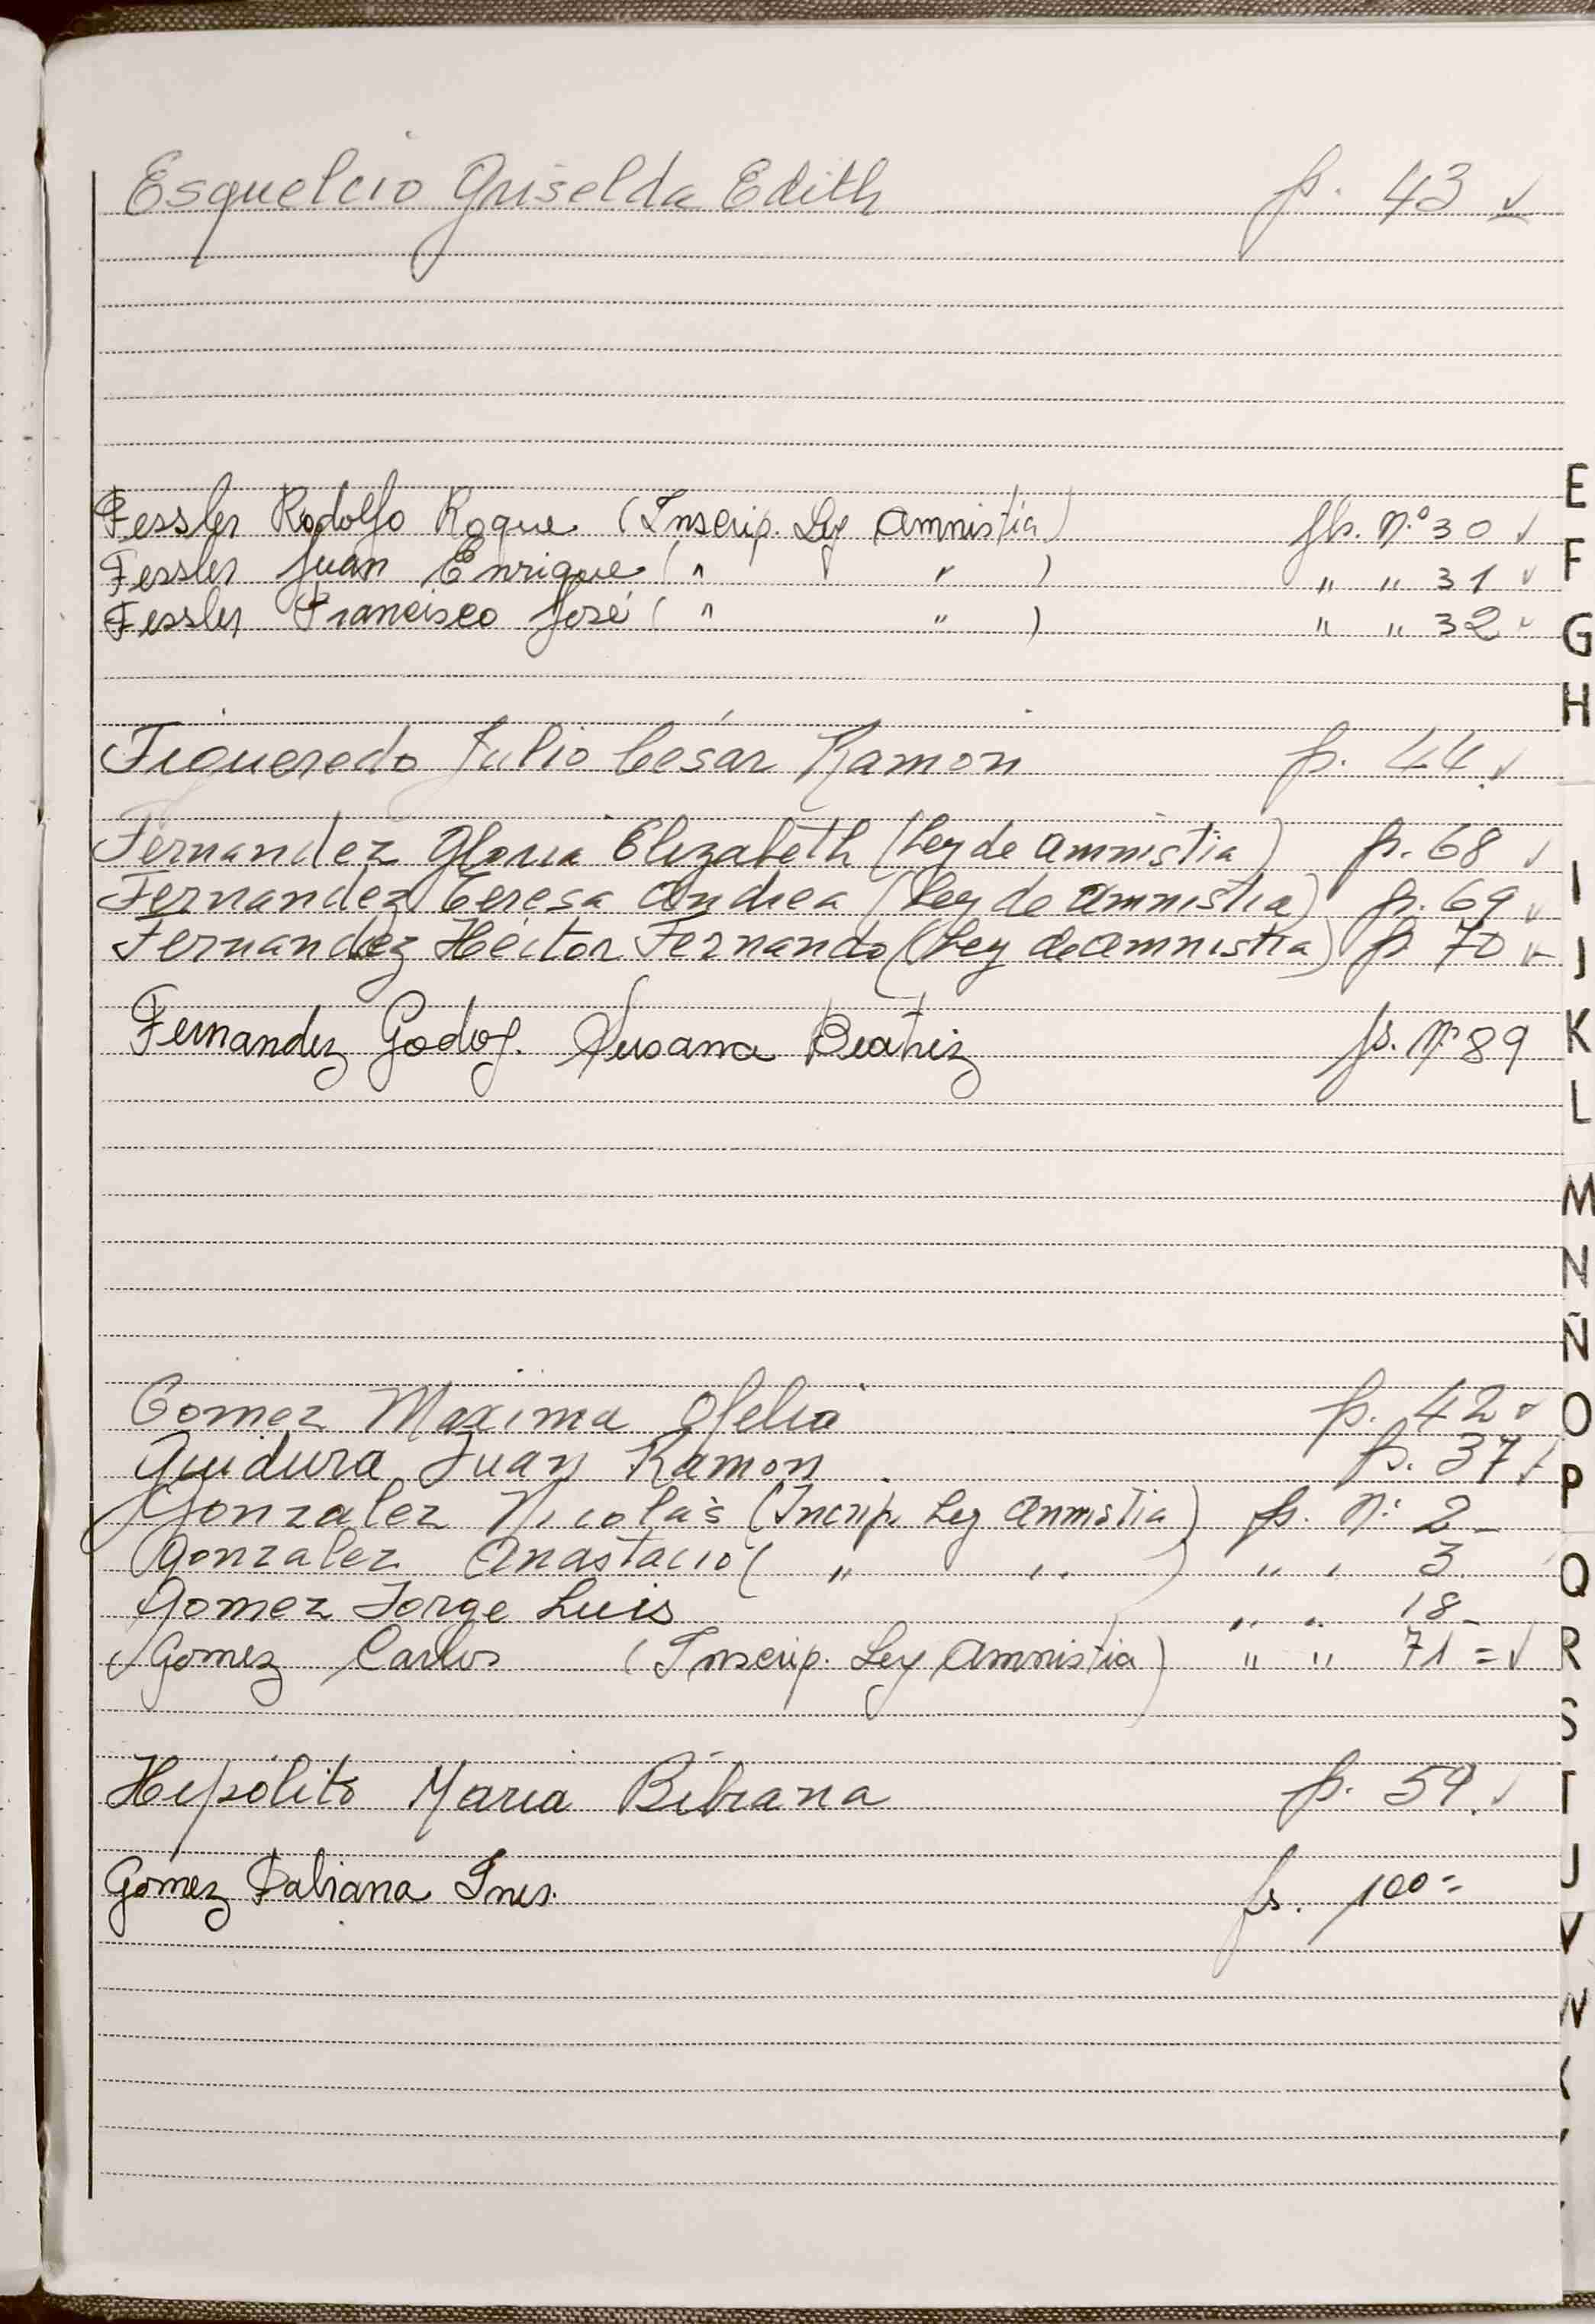 Esquelcio Griselda Edith fs. 43 ✓
Fessler Rodolfo Roque (Inscrip. Ley Amnistia) fls. Nº 30 ✓
Fessler Juan Enrique ( " " ) " " 31 ✓
Fessler Francisco José ( " " ) " " 32 ✓
Figueredo Julio César Ramón fs. 44 ✓
Fernandez Gloria Elizabeth (Ley de Amnistia) fs. 68 ✓
Fernandez Teresa Andrea (Ley de Amnistia) fs. 69 ✓
Fernandez Héctor Fernando (Ley de Amnistia) fs 70 ✓
Fernandez Godoy. Susana Beatriz fs. Nº 89
Gomez Maxima Ofelia fs. 42 ✓
Guidura Juan Ramon fs. 37 ✓
Gonzalez Nicolás (Incrip. Ley Anmstia) fs. Nº 2 -
Gonzalez Anastacio ( " " ) " " 3
Gomez Jorge Luis " " 18 -
Gomez Carlos (Inscrip. Ley Amnistia) " " 71 = ✓
Hipólito Maria Bibiana fs. 59 ✓
Gomez Daliana Ines. fs. 100 =
E
F
G
H
I
J
K
L
M
N
Ñ
O
P
Q
R
S
T
U
V
W